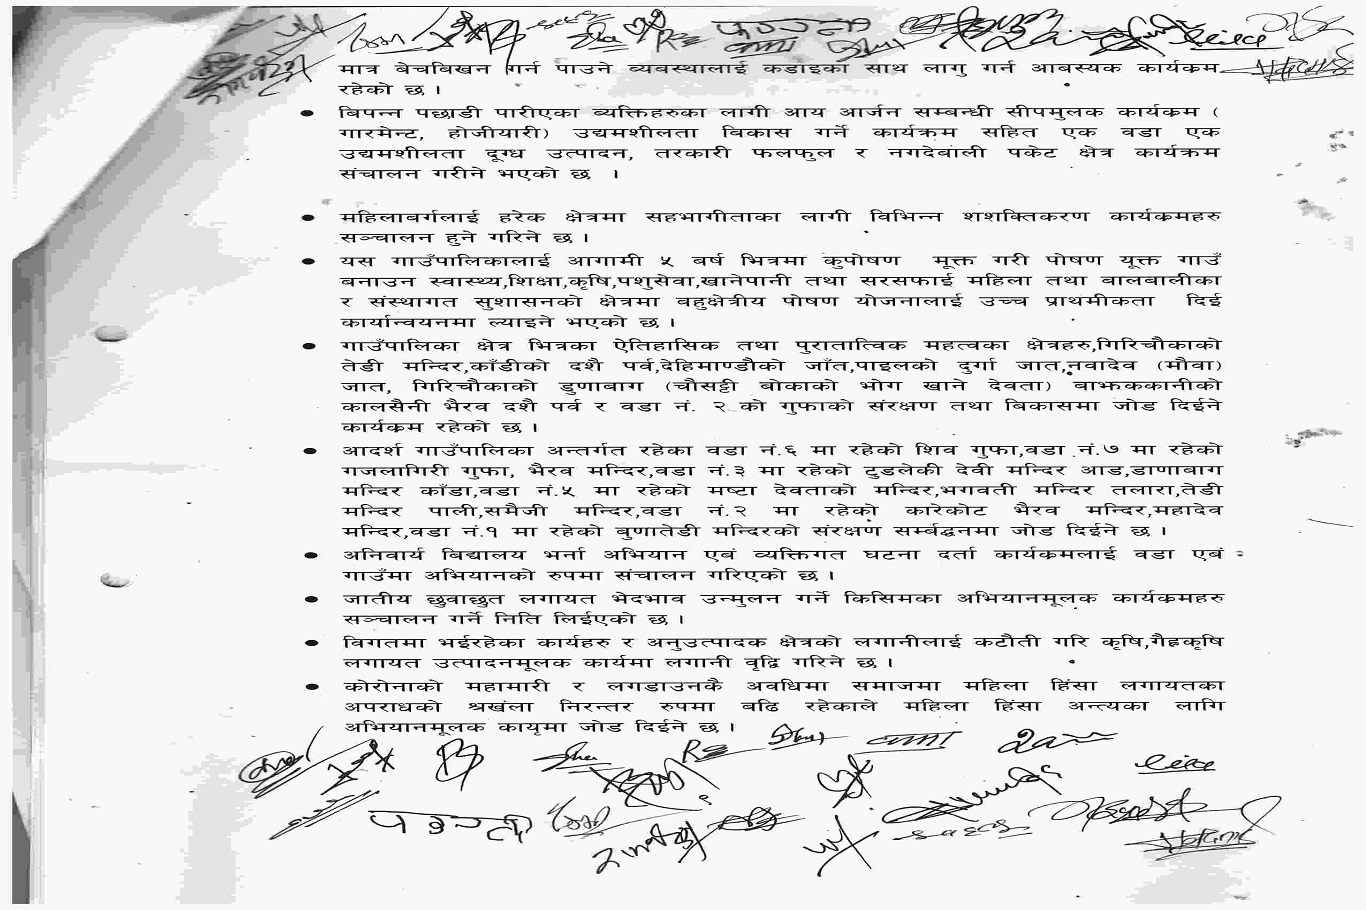 मात्र बेचबिखन गर्न पाउने ब्यवस्थालाई कडाइका साथ लागु गर्न आबस्यक कार्यक्रम
रहेको छ ।
• बिपन्न पछाडी पारीएका ब्यक्तिहरुका लागी आय आर्जन सम्बन्धी सीपमुलक कार्यक्रम (
गारमेन्ट, होजीयारी) उद्यमशीलता विकास गर्ने कार्यक्रम सहित एक वडा एक
उद्यमशीलता दूग्ध उत्पादन, तरकारी फलफुल र नगदेबाली पकेट क्षेत्र कार्यक्रम
संचालन गरीने भएको छ ।
• महिलाबर्गलाई हरेक क्षेत्रमा सहभागीताका लागी विभिन्न शशक्तिकरण कार्यक्रमहरु
सञ्चालन हुने गरिने छ ।
• यस गाउँपालिकालाई आगामी ५ बर्ष भित्रमा कुपोषण मूक्त गरी पोषण यूक्त गाउँ
बनाउन स्वास्थ्य,शिक्षा,कृषि,पशुसेवा,खानेपानी तथा सरसफाई महिला तथा बालबालीका
र संस्थागत सुशासनको क्षेत्रमा बहुक्षेत्रीय पोषण योजनालाई उच्च प्राथमीकता दिई
कार्यान्वयनमा ल्याइने भएको छ ।
• गाउँपालिका क्षेत्र भित्रका ऐतिहासिक तथा पुरातात्विक महत्वका क्षेत्रहरु,गिरिचौकाको
तेडी मन्दिर,काँडीको दशै पर्व,देहिमाण्डौको जाँत,पाइलको दुर्गा जात,नवादेव (मौवा)
जात, गिरिचौकाको डुणाबाग (चौसट्टी बोकाको भोग खाने देवता) बाझककानीको
कालसैनी भैरव दशै पर्व र वडा नं. २ को गुफाको संरक्षण तथा बिकासमा जोड दिईने
कार्यक्रम रहेको छ ।
• आदर्श गाउँपालिका अन्तर्गत रहेका वडा नं.६ मा रहेको शिव गुफा,वडा नं.७ मा रहेको
गजलागिरी गुफा, भैरव मन्दिर,वडा नं.३ मा रहेको टुडलेकी देवी मन्दिर आड,डाणाबाग
मन्दिर काँडा,वडा नं.५ मा रहेको मष्टा देवताको मन्दिर,भगवती मन्दिर तलारा,तेडी
मन्दिर पाली,समैजी मन्दिर,वडा नं.२ मा रहेको कारेकोट भैरव मन्दिर,महादेव
मन्दिर,वडा नं.१ मा रहेको बुणातेडी मन्दिरको संरक्षण सर्म्बद्धनमा जोड दिईने छ ।
• अनिवार्य बिद्यालय भर्ना अभियान एबं व्यक्तिगत घटना दर्ता कार्यक्रमलाई वडा एबं
गाउँमा अभियानको रुपमा संचालन गरिएको छ ।
• जातीय छुवाछुत लगायत भेदभाव उन्मुलन गर्ने किसिमका अभियानमूलक कार्यक्रमहरु
सञ्चालन गर्ने निति लिईएको छ ।
• विगतमा भईरहेका कार्यहरु र अनुउत्पादक क्षेत्रको लगानीलाई कटौती गरि कृषि,गैह्रकृषि
लगायत उत्पादनमूलक कार्यमा लगानी वृद्वि गरिने छ ।
• कोरोनाको महामारी र लगडाउनकै अवधिमा समाजमा महिला हिंसा लगायतका
अपराधको श्रखंला निरन्तर रुपमा बढि रहेकाले महिला हिंसा अन्त्यका लागि
अभियानमूलक कायृमा जोड दिईने छ ।